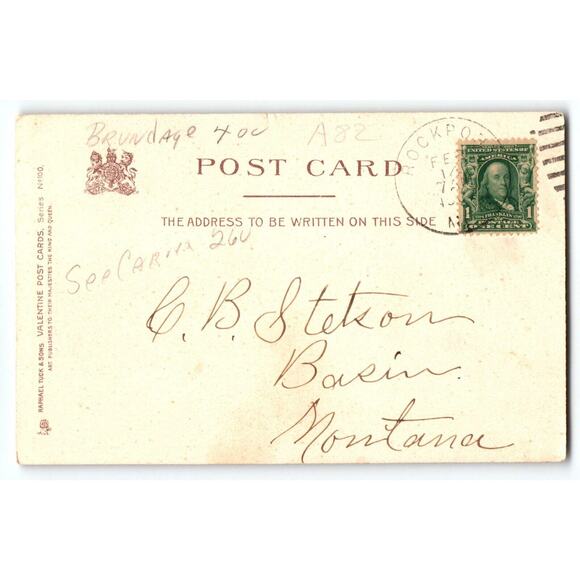 Brundage 4 00 A82
POST CARD
THE ADDRESS TO BE WRITTEN ON THIS SIDE
RAPHAEL TUCK & SONS. VALENTINE POST CARDS. Series Nº 100.
ART PUBLISHERS TO THEIR MAJESTIES THE KING AND QUEEN
ROCKPO
FE
UNITED STATES OF
AMERICA
1 FRANKLIN 1
POSTAGE
ONE CENT
See 260
C. B. Stetson
Basin
Montana